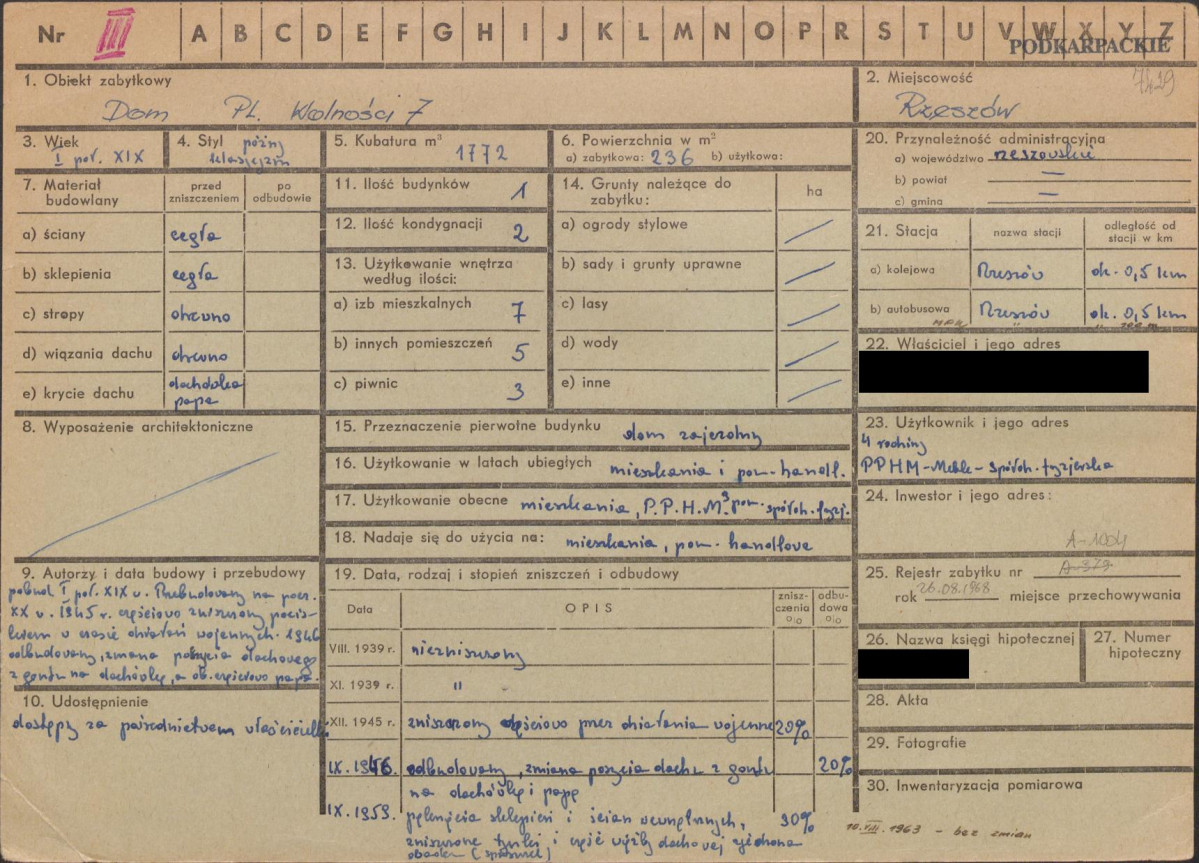 Nr III A B C D E F G H I J K L M N O P R S T U V W X Y Z
PODKARPACKIE
1. Obiekt zabytkowy
Dom Pl. Wolności 7
2. Miejscowość 7429
Rzeszów
3. Wiek
I poł. XIX
4. Styl późny
klasycyzm
5. Kubatura m³ 1772
6. Powierzchnia w m²
a) zabytkowa: 236 b) użytkowa:
20. Przynależność administracyjna
a) województwo rzeszowskie
b) powiat —
c) gmina —
7. Materiał budowlany
przed zniszczeniem
po odbudowie
a) ściany cegła
b) sklepienia cegła
c) stropy drewno
d) wiązania dachu drewno
e) krycie dachu dachówka
papa
11. Ilość budynków 1
12. Ilość kondygnacji 2
13. Użytkowanie wnętrza
według ilości:
a) izb mieszkalnych 7
b) innych pomieszczeń 5
c) piwnic 3
14. Grunty należące do
zabytku: ha
a) ogrody stylowe
b) sady i grunty uprawne
c) lasy
d) wody
e) inne
21. Stacja
nazwa stacji
odległość od
stacji w km
a) kolejowa Rzeszów ok. 0,5 km
b) autobusowa Rzeszów ok. 0,5 km
22. Właściciel i jego adres
23. Użytkownik i jego adres
4 rodziny
PPHM-Meble-Spółdz. fryzjerska
24. Inwestor i jego adres:
8. Wyposażenie architektoniczne
15. Przeznaczenie pierwotne budynku dom zajezdny
16. Użytkowanie w latach ubiegłych mieszkania i pom. handl.
17. Użytkowanie obecne mieszkania, P.P.H.M. pom. spółdz. fryzj.
18. Nadaje się do użycia na: mieszkania, pom. handlowe
A-1004
25. Rejestr zabytku nr A-379
rok 26.08.1968 miejsce przechowywania
26. Nazwa księgi hipotecznej
27. Numer
hipoteczny
28. Akta
29. Fotografie
30. Inwentaryzacja pomiarowa
10.VIII.1963 - bez zmian
9. Autorzy i data budowy i przebudowy
pobud. I poł. XIX w. Przebudowany na pocz.
XX w. 1945 r. częściowo zniszczony pocis-
kiem w czasie działań wojennych. 1946
odbudowany, zmiana pokrycia dachowego
z gontu na dachówkę, a ob. częściowo papa.
10. Udostępnienie
dostępny za pośrednictwem właścicielki
19. Data, rodzaj i stopień zniszczeń i odbudowy
Data
OPIS
znisz-
czenia
o/o
odbu-
dowa
o/o
VIII. 1939 r. niezniszczony
XI. 1939 r. "
XII. 1945 r. zniszczony częściowo przez działania wojenne 20%
IX. 1946. odbudowany, zmiana poszycia dachu z gontu 20%
na dachówkę i papę
IX. 1959. pęknięcia sklepień i ścian wewnętrznych, 30%
zniszczone tynki i część więźby dachowej zjedzona